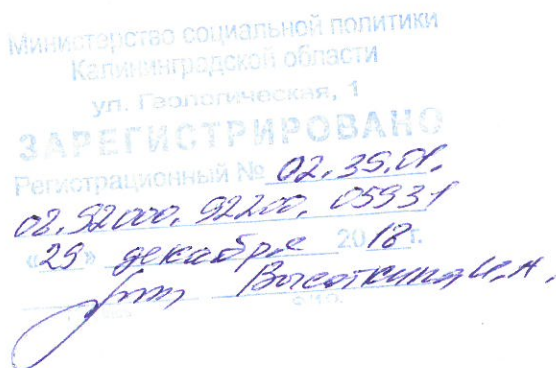 Министерство социальной политики
Калининградской области
ул. Геологическая, 1
ЗАРЕГИСТРИРОВАНО
Регистрационный № 02.39.01.
08.92000.92200.05931
«29» декабря 2018 г.
Высоткина И.А.
Ф.И.О.